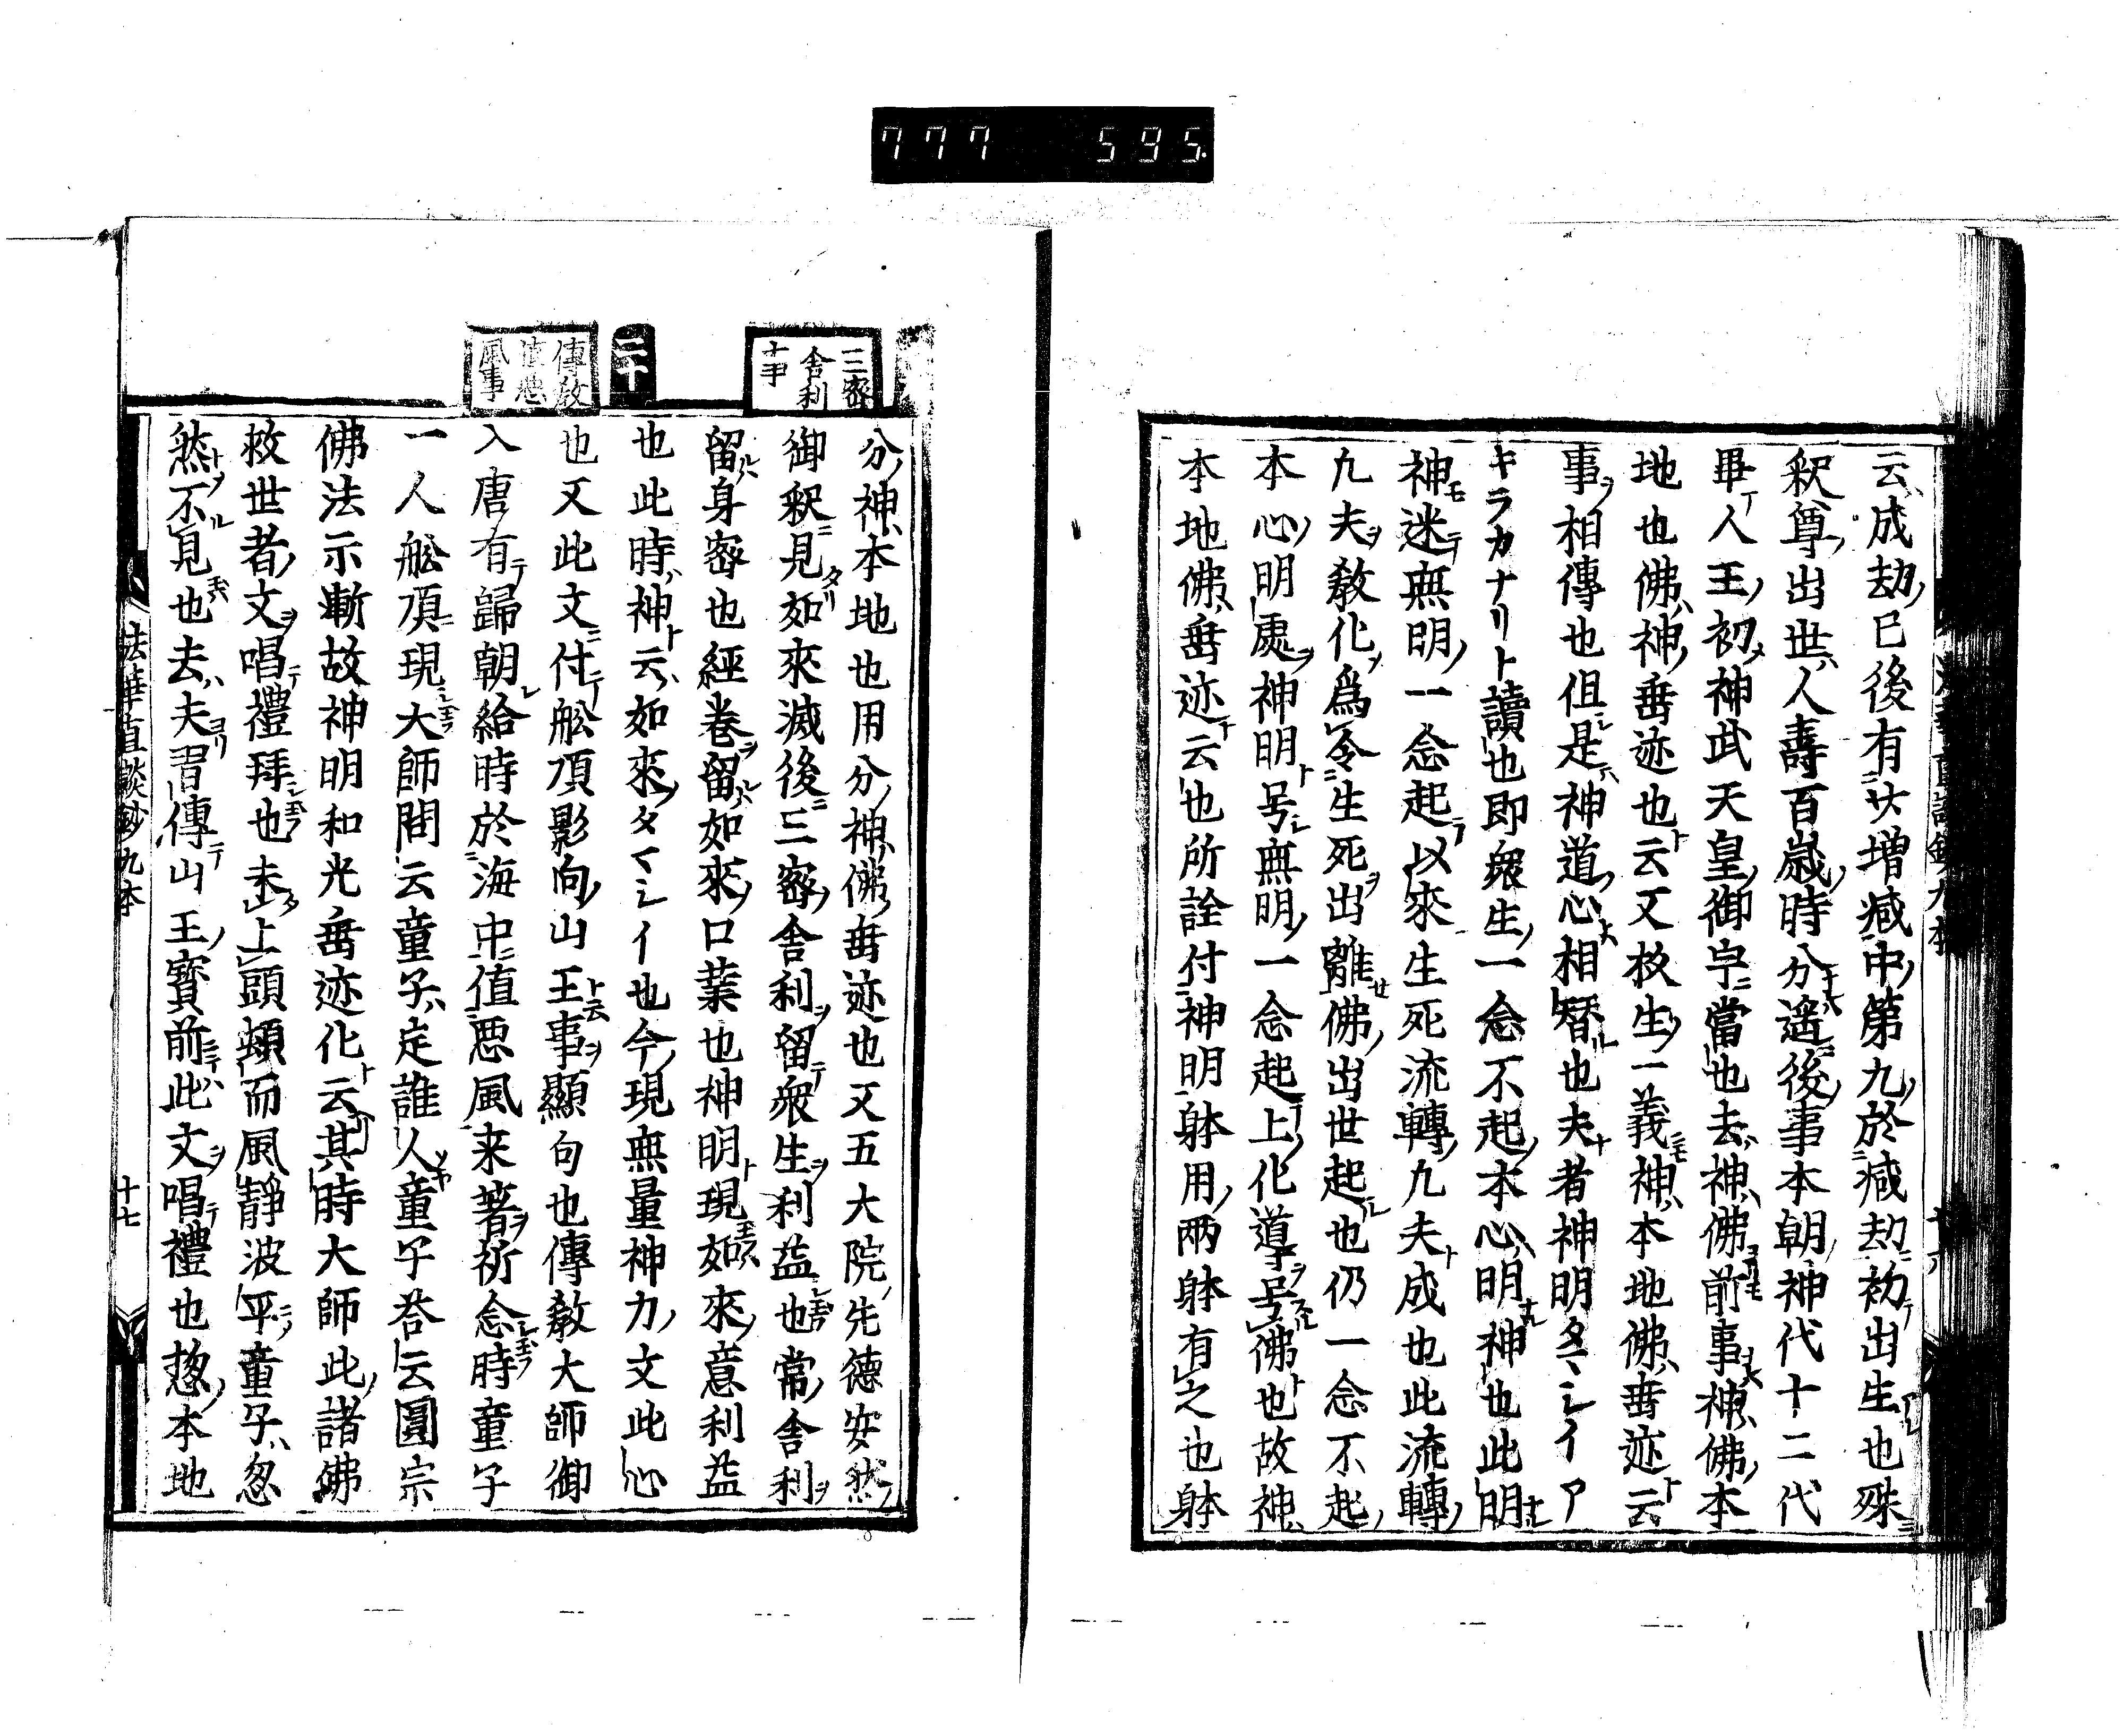 777 595.
云成劫已後有廿増减中第九於减劫初出生也殊
釈尊出世人壽百歳時分遥後事本朝神代十二代
畢人王初神武天皇御宇當也去神佛前事神佛本
地也佛神垂迹也云又杦生一義神本地佛垂迹云
事相傳也但是神道心相替也夫者神明タヽシイア
キラカナリト讀也即衆生一念不起本心明神也此明
神迷無明一念起以來生死流轉九夫成也此流轉
九夫教化爲令生死出離佛出世起也仍一念不起
本心明處神明号無明一念起上化導号佛也故神
本地佛垂迹云也所詮付神明躰用両躰有之也躰
三密
舎利
事
二十
傳教
値悪
風事
分神本地也用分神佛垂迹也又五大院先德安然
御釈見如來滅後三密舎利留衆生利益也常舎利
留身密也經卷留如來口業也神明現如來意利益
也此時神云如來タヽシイ也今現無量神力文此心
也又此文付舩頂影向山王事顯句也傳教大師御
入唐有歸朝給時於海中值悪風来著祈念時童子
一人舩頂現大師問云童子定誰人童子荅云圓宗
佛法示漸故神明和光垂迹化云其時大師此諸佛
救世者文唱禮拜也未上頭頰而風靜波平童子忽
然不見也去夫習傳山王寳前此文唱禮也惣本地
法華直談鈔九本
十七